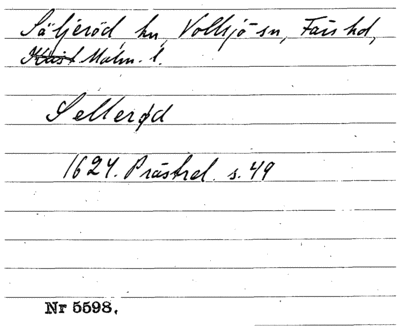 Säljeröd hn, Vollsjö sn, Färs hd,
Krist Malm. l.
Sellerød
1624. Prästrel. s. 49
Nr 5598.